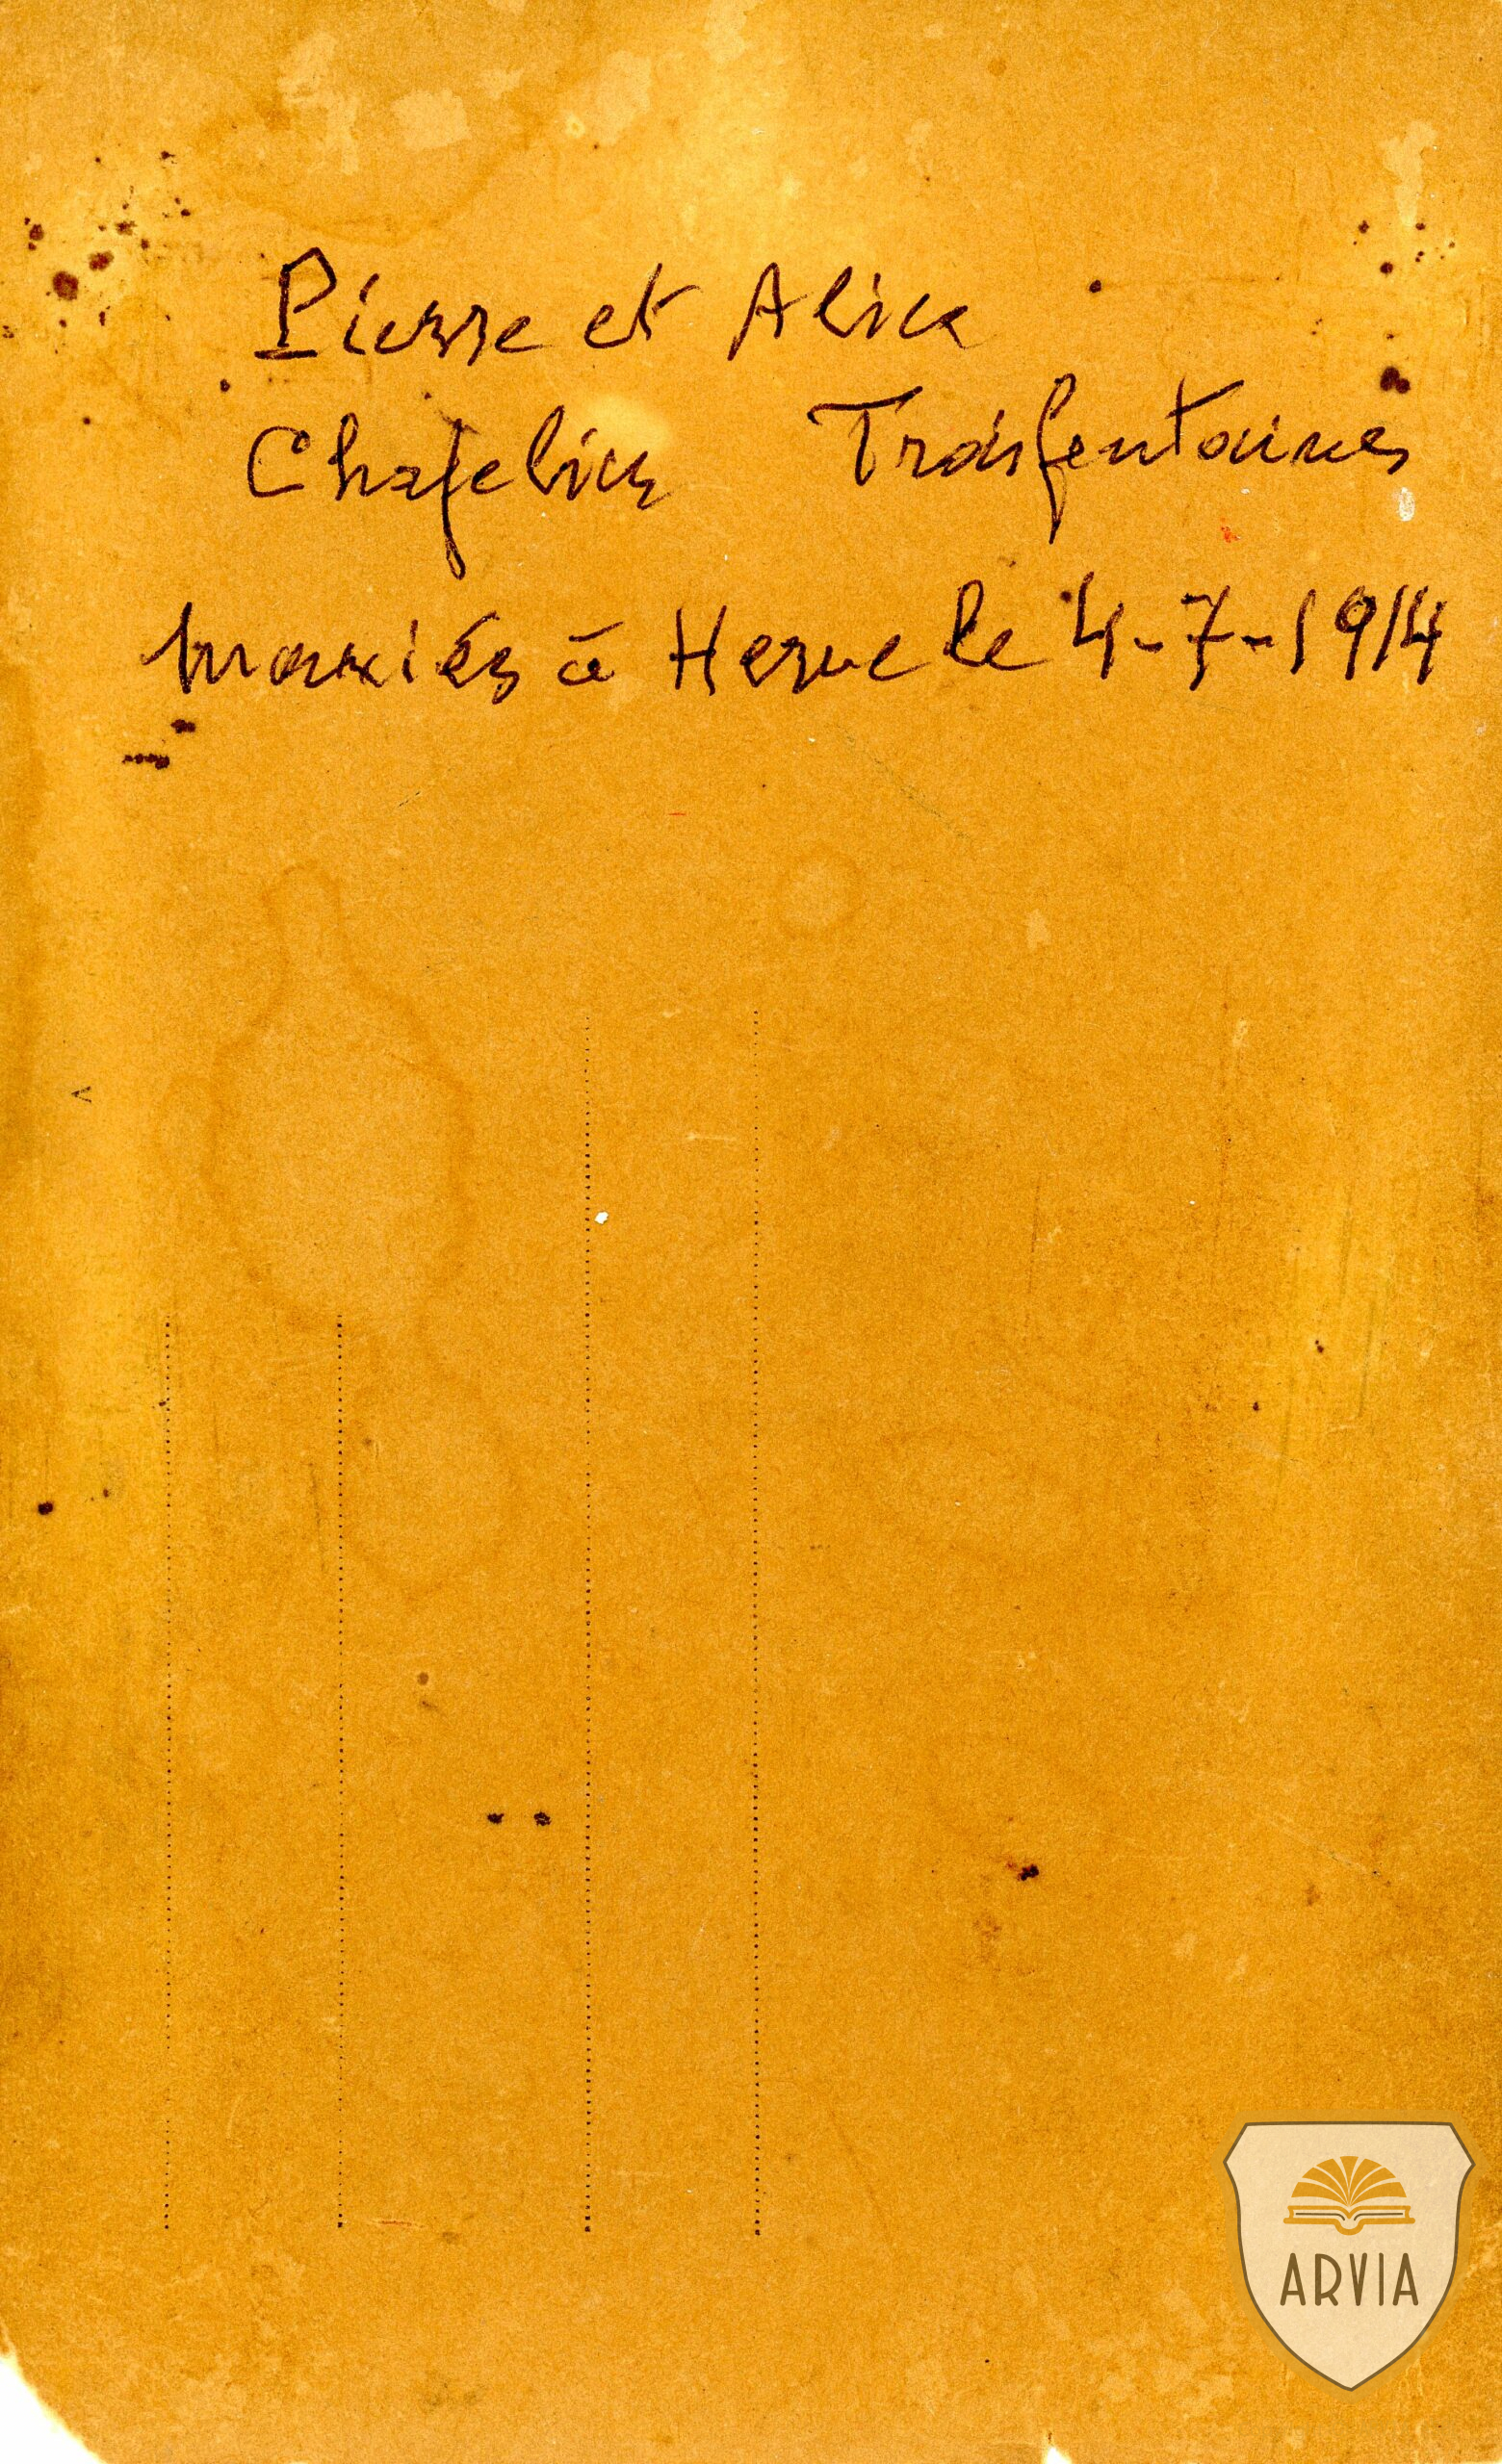 Pierre et Alice
Trois fontaines
mariés à Herve le 4-7-1914
ARVIA